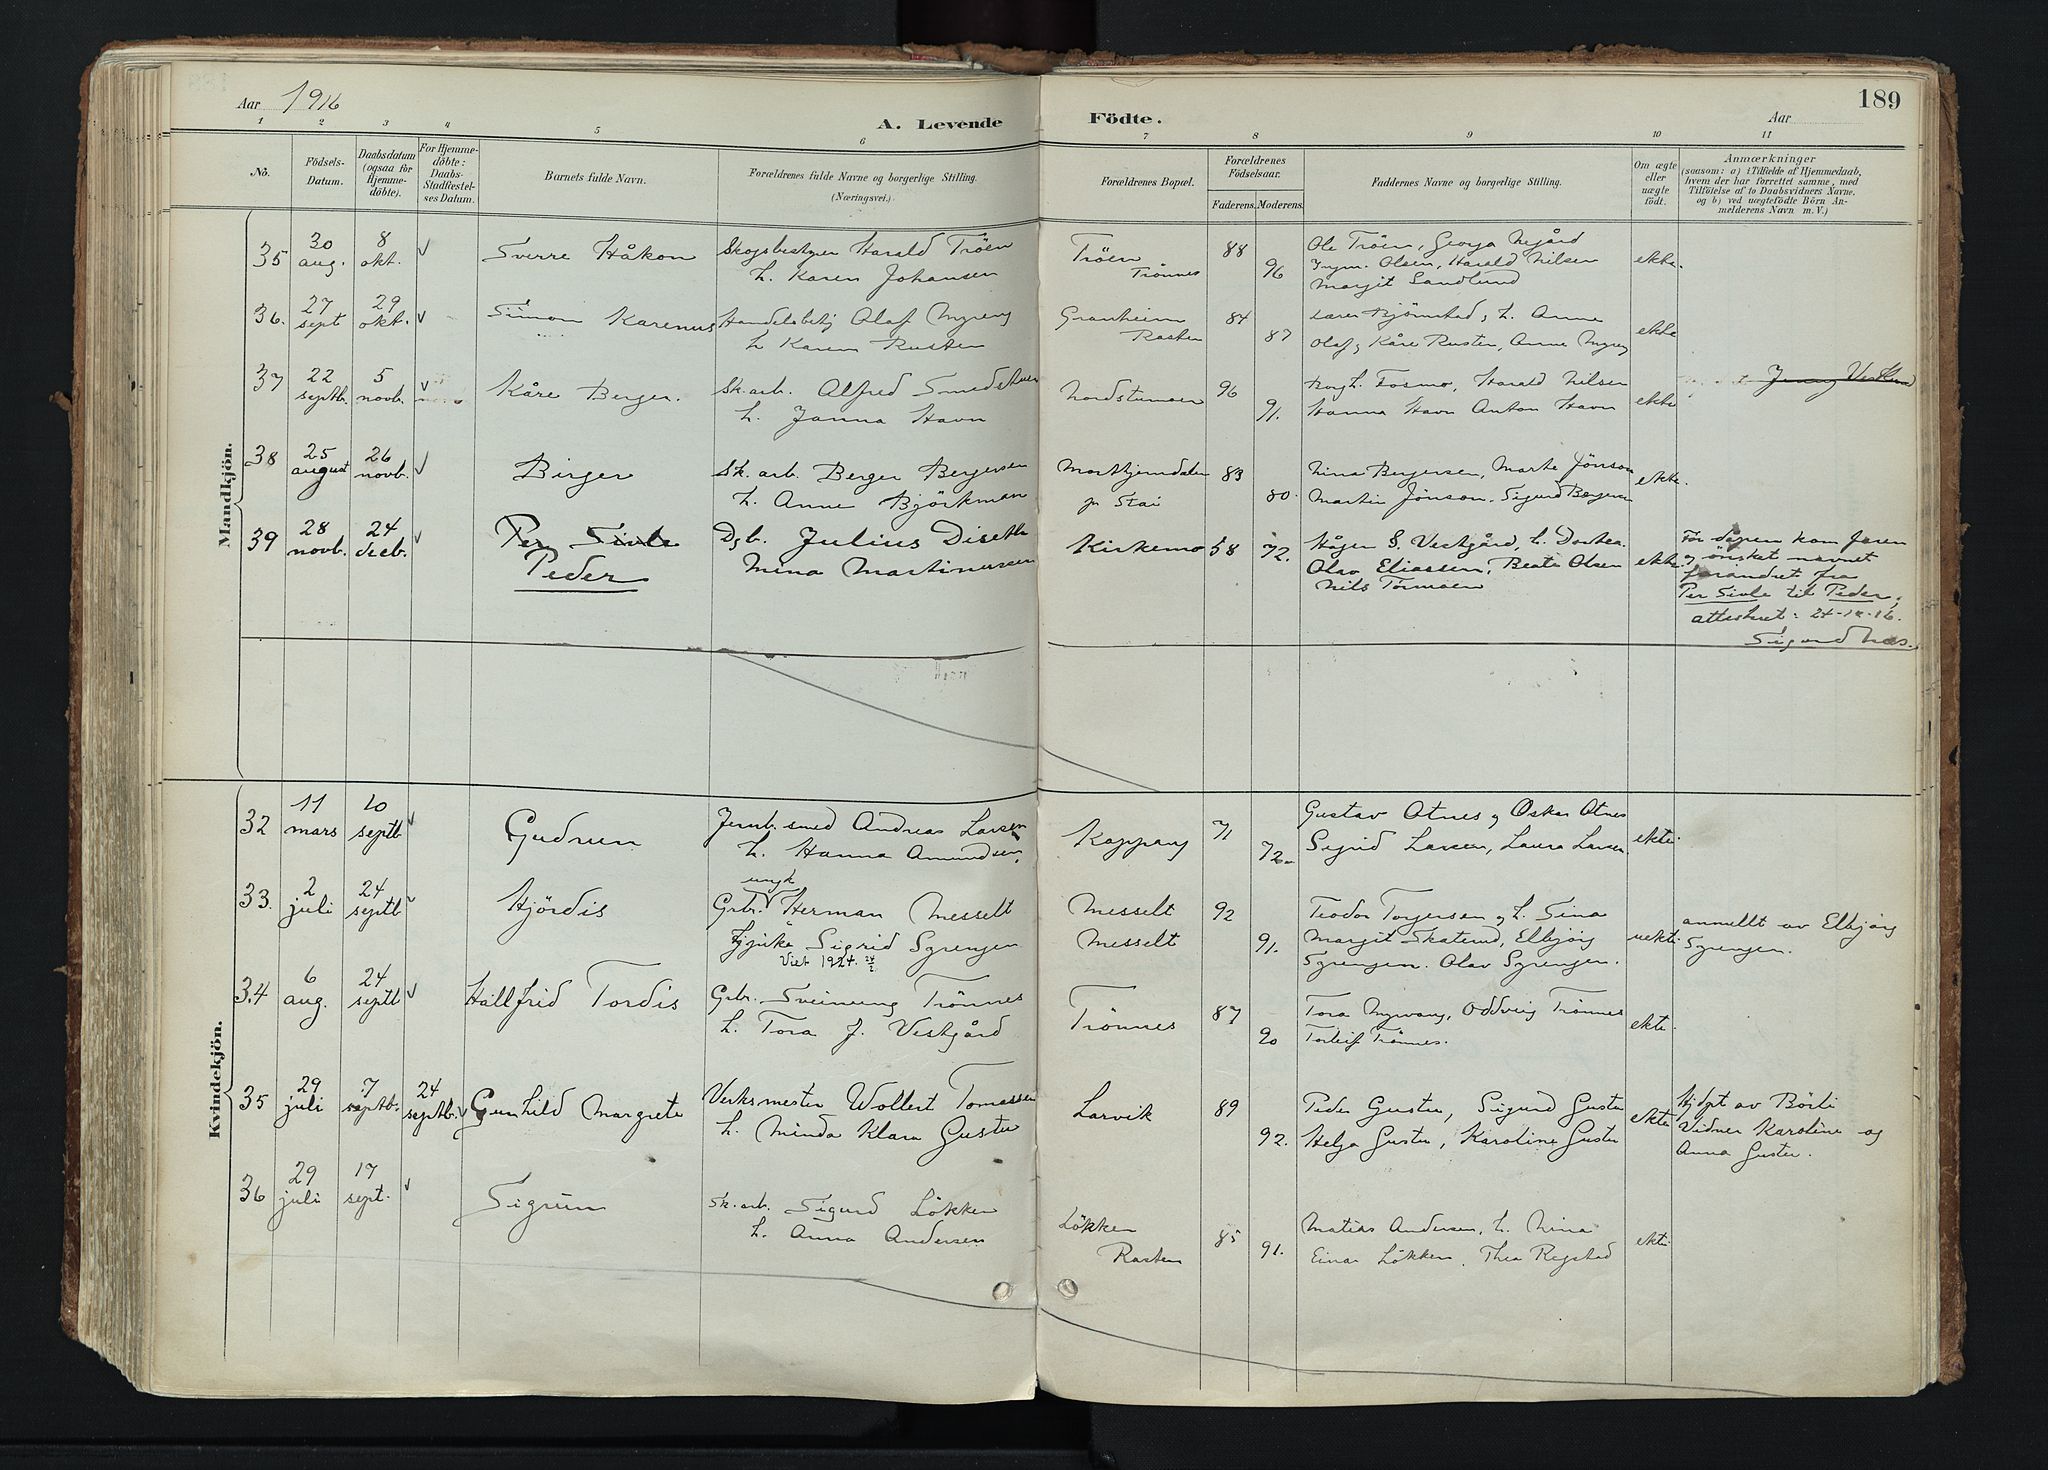 Aar 1916
A. Levende Födte.
Aar
189
1 2 3 4 5 6 7 8 9 10 11
No.
Födsels-Datum.
Daabsdatum (ogsaa for Hjemmedöbte).
For Hjemmedöbte: Daabs-Stadfæstelses Datum.
Barnets fulde Navn.
Forældrenes fulde Navne og borgerlige Stilling. (Næringsvei.)
Forældrenes Bopæl.
Forældrenes Födselsaar.
Faderens. Moderens.
Faddernes Navne og borgerlige Stilling.
Om ægte eller uægte födt.
Anmærkninger
(saasom: a) i Tilfælde af Hjemmedaab,
hvem der har forrettet samme, med
Tilföielse af to Daabsvidners Navne.
og b) ved uægtefödte Börn An-
melderens Navn m. V.)
Mandkjön.
35 30 aug. 8 okt. Sverre Håkon Skogsbestyrer Harald Tröen
h. Karen Johansen
Tröen
Trönnes
88 96
Ole Tröen, Georga Negård
Ingm. Olsen, Harald Nilsen
Margit Sandlund
ekte.
36. 27 sept 29 okt. Simon Karenus Handelsbetj Olaf Nyreng
h Karen Rusten
Granheim
Rasten
84 87
Lærer Björnstad, h. Anne
Olaf, Kåre Rusten, Anne Nyreng
ekte
37 22 septb. 5 novb. Kåre Berger. Sk.arb. Alfred Smedstuen
h. Janna Havn
Nordstumoen 96 91.
Fosmo, Harald Nilsen
Hanna Havn Anton Havn
ekte
38 25 august 26 novb. Birger Sk. arb. Berger Bergersen
h. Anne Björkman
Morkhjemdalen
pr Stai
83 80.
Nina Bergersen, Marte Jönson
Martin Jönson. Sigurd Bergersen
ekte.
39 28 novb. 24 deeb. Per Sivle
Peder
Dgb. Julius Diseth
Mina Martinussen
Kirkemo 58 72.
Hågen S. Vestgård, h. Dorthea.
Olav Eliassen, Beate Olsen
Nils Törmoen
ekte.
För dåpen kom faren
og önsket navnet
forandret fra
Per Sivle til Peder,
attesteret: 24-12-16.
Sigurd Næs.
Kvindekjön.
32 11 mars 10 septb Gudrun Jernb. smed Andreas Larsen
h. Hanna Amundsen.
Koppang 71 72.
Gustav Otnes og Oskar Otnes
Sigrid Larsen, Laura Larsen
ekte.
33. 2 juli 24 septb Hjördis ungk
Grbr. Herman Messelt
pike Sigrid Sgrengen
Viet 1924. 24/2.
Messelt
Messelt
92 91.
Teodor Torgersen og h. Sina
Margit Skaterud, Elbjörg
Sgrengen. Olav Sgrengen.
uekte.
anmeldt av Elbjörg
Sgrengen.
34 6 aug. 24 septb Hallfrid Tordis Grbr. Sveinung Trönnes
h. Tora J. Vestgård
Trönnes 87 90
Tora Nyvang, Oddveig Trönnes
Torleif Trönnes.
ekte
35 29 juli 7 septb. 24 septb. Gunhild Margrete Verksmester Wollert Tomassen
h. Minda Klara Guster
Larvik 89 92.
Peder Guster, Sigurd Guster
Helga Guster, Karoline Guster
ekte
Hjdpt av Börli
Vidner Karoline og
Anna Guster.
36 29 juli 17 sept. Sigrun Sk.arb. Sigurd Lökken
h. Anna Andersen
Lökken
Rasten
85 91.
Matias Andersen, h. Nina
Einar Lökken, Thea Regstad
ekte